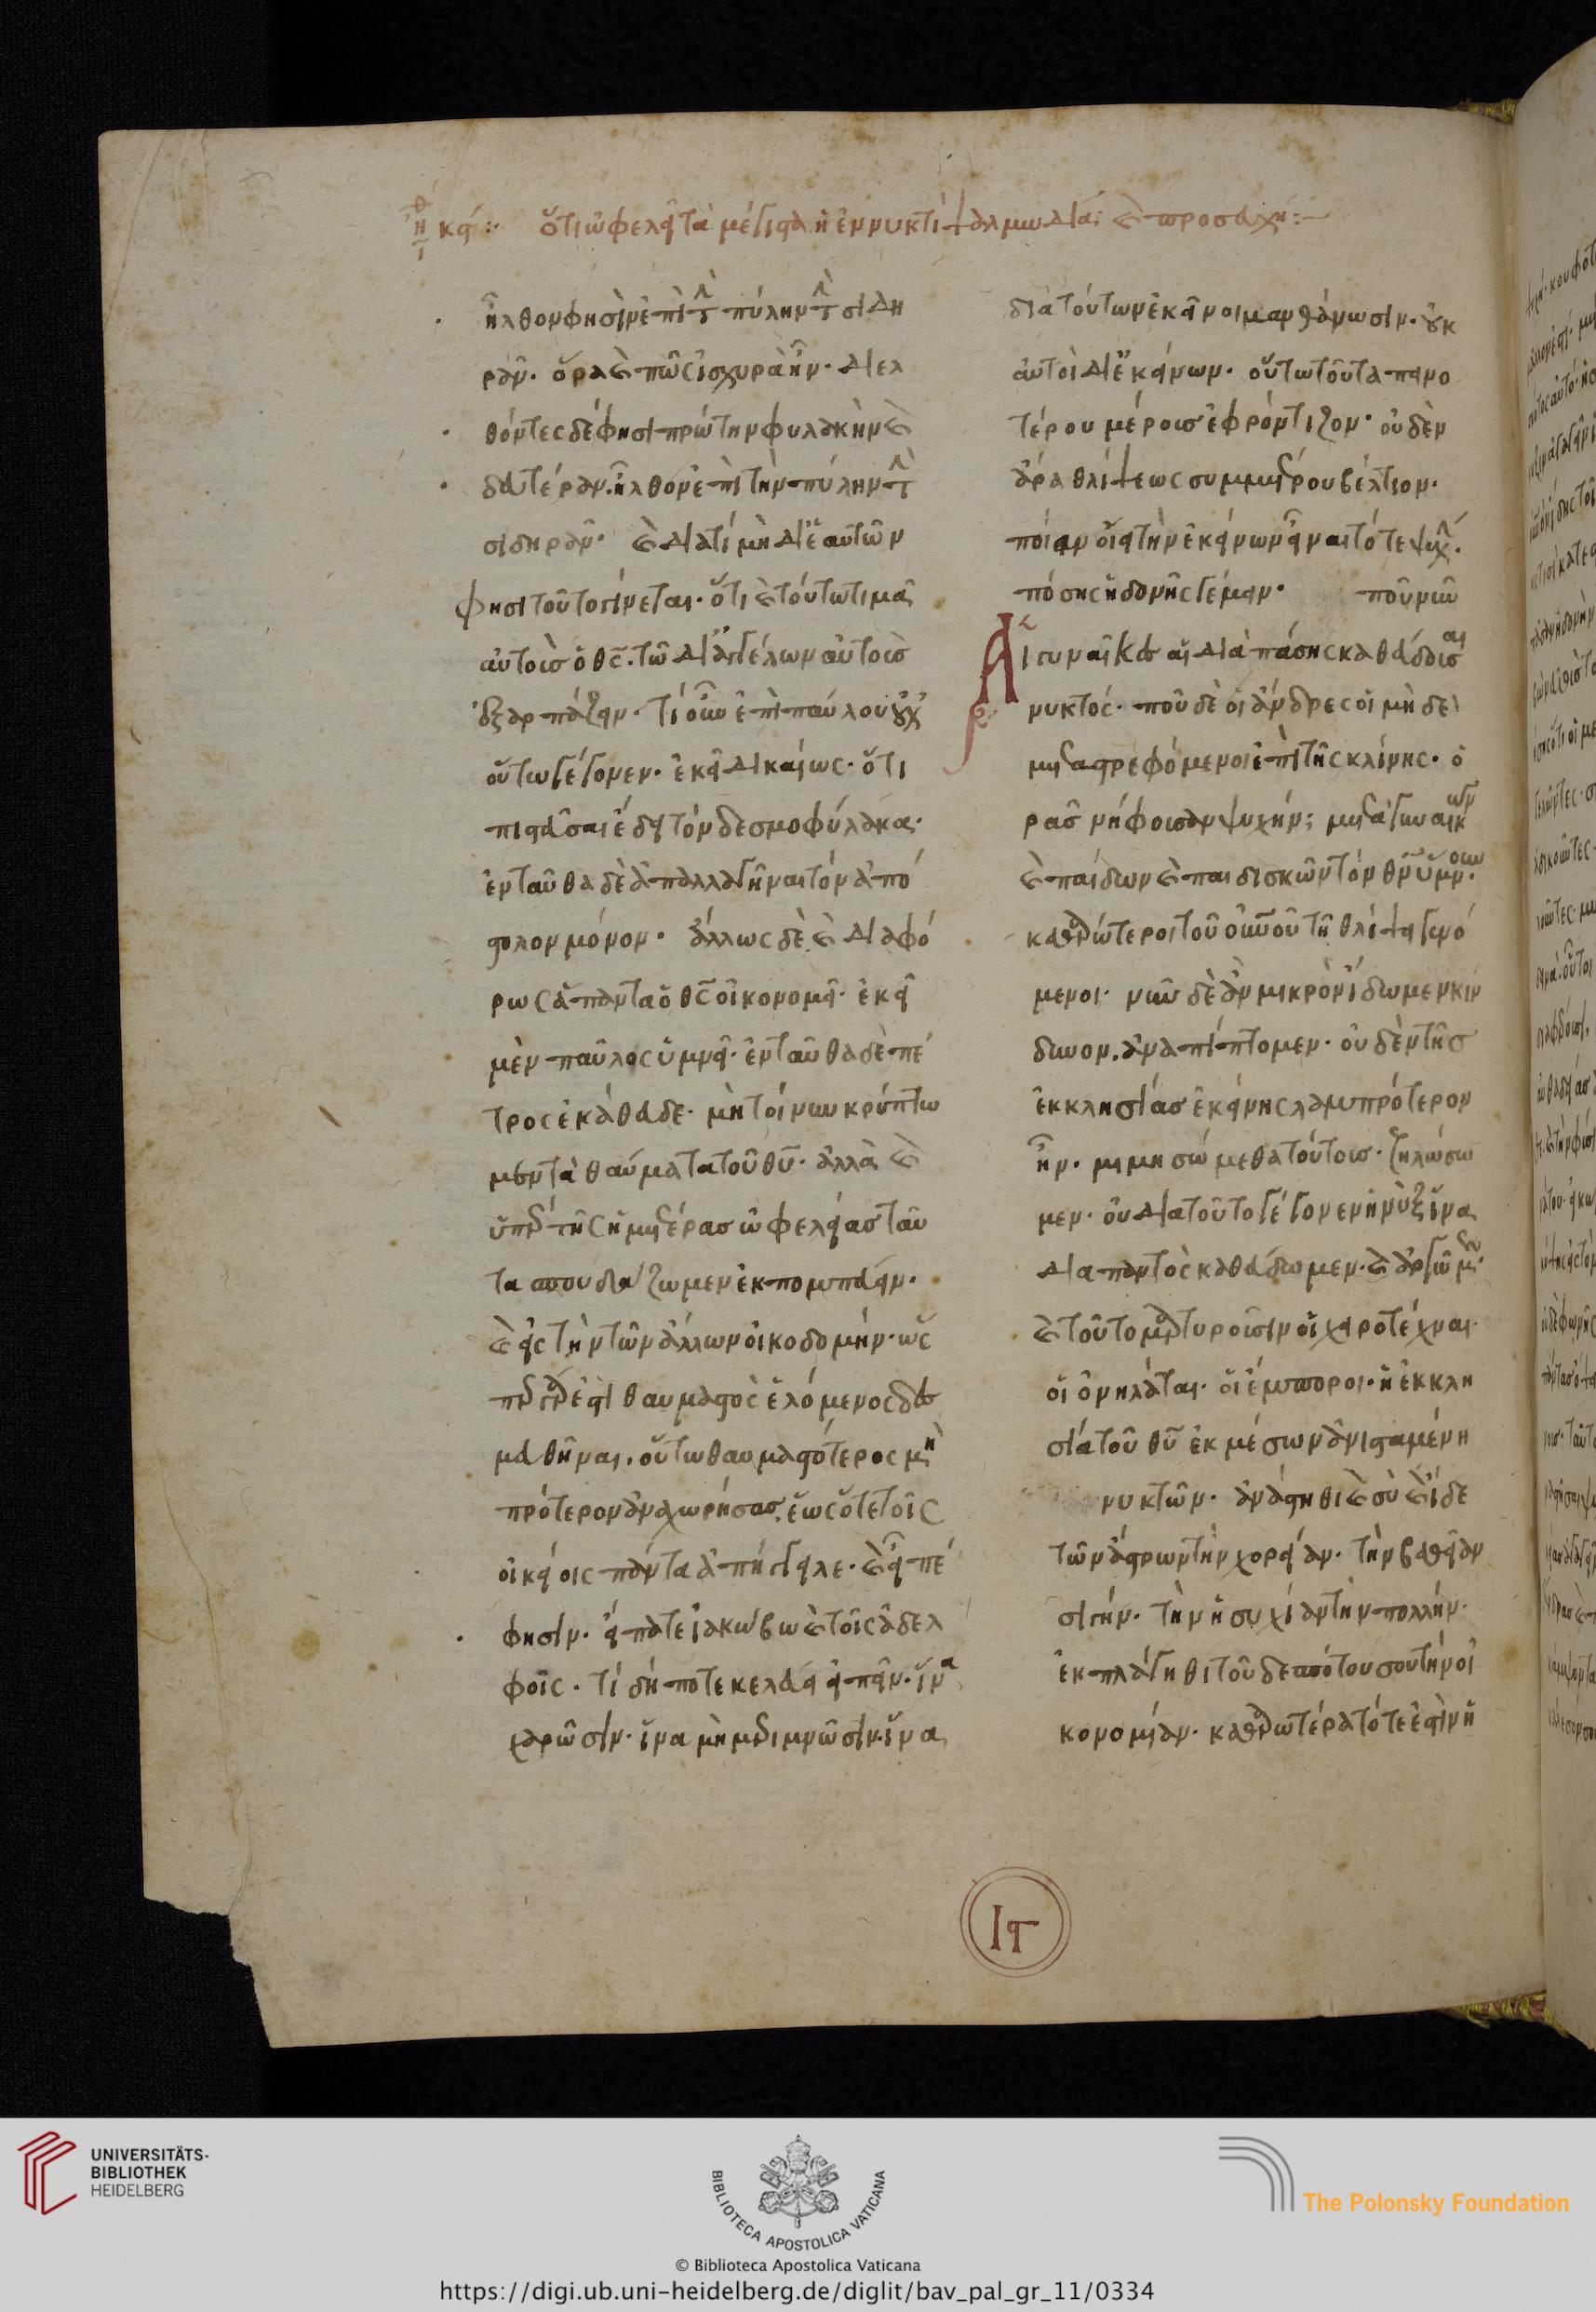 ἠθικ κϛ: ὅτι ὠφελεῖ τὰ μέγιστα ἡ ἐν νυκτὶ ψαλμωδία· καὶ προσευχή:-
ἦλθον φησὶν ἐπὶ τὴν πύλην τὴν σιδη
ρᾶν. ὅρα καὶ πῶς ἰσχυρὰ ἦν. διελ
θόντες δέ φησι πρώτην φυλακὴν καὶ
δευτέραν. ἦλθον ἐπὶ τὴν πύλην τὴν
σιδηρᾶν. καὶ διατί μὴ δι' ἑαυτῶν
φησι τοῦτο γίνεται. ὅτι καὶ τούτω τιμᾶ
αὐτοὺς ὁ θς. τῶ δι' ἀγγέλων αὐτοὺς
ἐξαρπάζειν. τί οὖν ἐπὶ παύλου οὐχ
οὕτω γέγονεν. ἐκεῖ δικαίως. ὅτι
πιστεῦσαι ἔδει τὸν δεσμοφύλακα.
ἐνταῦθα δὲ ἀπαλλαγῆναι τὸν ἀπό
στολον μόνον. ἄλλως δὲ καὶ διαφό
ρως ἅπαντα ὁ θς οἰκονομεῖ. ἐκεῖ
μὲν παῦλος ὑμνεῖ. ἐνταῦθα δὲ πέ
τρος ἐκάθευδε. μὴ τοίνυν κρύπτω
μεν τὰ θαύματα τοῦ θυ. ἀλλὰ καὶ
ὑπὲρ τῆς ἡμετέρας ὠφελείας ταῦ
τα σπουδάζωμεν ἐκπομπεύειν.
καὶ εἰς τὴν τῶν ἄλλων οἰκοδομήν. ὡς
περ γάρ ἐστι θαυμαστὸς ἑλόμενος δεσ
μευθῆναι. οὕτω θαυμαστότερος μὴ
πρότερον ἀναχωρήσας. ἕως ὅτε τοῖς
οἰκείοις πάντα ἀπήγγειλε. καὶ εἶπέ
φησιν. εἴπατε ἰακώβω καὶ τοῖς ἀδελ
φοῖς. τί δήποτε κελεύει εἰπεῖν. ἵνα
χαρῶσιν. ἵνα μὴ μεριμνῶσιν. ἵνα
διὰ τούτων ἐκεῖνοι μανθάνωσιν. οὐκ
αὐτοὶ δι' ἐκείνων. οὕτω τοῦ ταπεινο
τέρου μέρους ἐφρόντιζον. οὐδὲν
ἄρα θλίψεως συμμέτρου βέλτιον.
ποίαν οἴει τὴν ἐκείνων εἶναι τότε ψυχήν.
πόσης ἡδονῆς γέμειν. ποῦ νῦν
Αἱ γυναῖκες αἱ διὰ πάσης καθεύδουσαι
νυκτός. ποῦ δὲ οἱ ἄνδρες οἱ μὴ δὲ
μεταστρεφόμενοι ἐπὶ τῆς κλίνης. ὁ
ρᾶς νήφουσαν ψυχήν; μετὰ γυναικῶν
καὶ παίδων καὶ παιδισκῶν τὸν θν ὕμνουν.
καθαρώτεροι τοῦ οὐνοῦ τῆ θλίψει γενό
μενοι. νῦν δὲ ἂν μικρὸν ἴδωμεν κίν
δυνον. ἀναπίπτομεν. οὐδὲν τῆς
ἐκκλησίας ἐκείνης λαμπρότερον
ἦν. μιμησώμεθα τούτους. ζηλώσω
μεν. οὐ διατοῦτο γέγονεν ἡ νὺξ ἵνα
διαπαντὸς καθεύδωμεν. καὶ ἀργῶμεν.
καὶ τοῦτο μαρτυροῦσιν οἱ χειροτέχναι.
οἱ ὀνηλάται. οἱ ἔμποροι. ἡ ἐκκλη
σία τοῦ θυ ἐκ μέσων ἀνισταμένη
νυκτῶν. ἀνάστηθι καὶ σὺ καὶ ἴδε
τῶν ἄστρων τὴν χορείαν. τὴν βαθεῖαν
σιγήν. τὴν ἡσυχίαν τὴν πολλήν.
ἐκπλάγηθι τοῦ δεσπότου σου τὴν οἰ
κονομίαν. καθαρωτέρα τότε ἐστὶν ἡ
Ιϛ
UNIVERSITÄTS-
BIBLIOTHEK
HEIDELBERG
BIBLIOTECA APOSTOLICA VATICANA
© Biblioteca Apostolica Vaticana
The Polonsky Foundation
https://digi.ub.uni-heidelberg.de/diglit/bav_pal_gr_11/0334